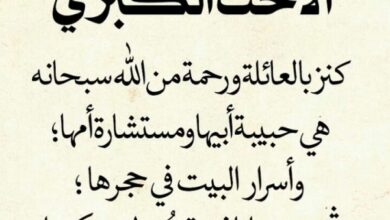 الأخت الكبرى
كنز بالعائلة ورحمة من الله سبحانه
هي حبيبة أبيها ومستشارة أمها؛
وأسرار البيت في حجرها؛